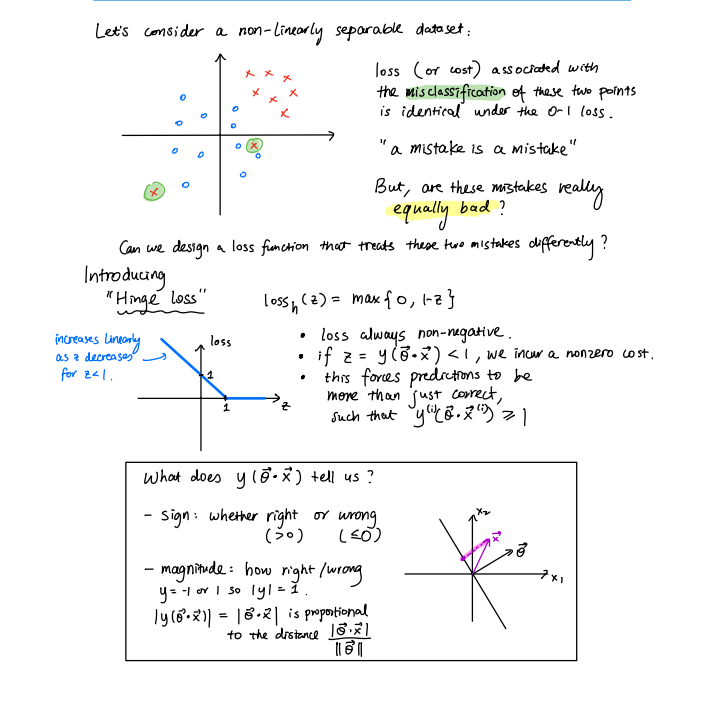 Let's consider a non-linearly separable dataset:
loss (or cost) associated with
the misclassification of these two points
is identical under the 0-1 loss.
"a mistake is a mistake"
But, are these mistakes really
equally bad?
Can we design a loss function that treats these two mistakes differently?
Introducing
"Hinge loss"
loss_h (z) = max{0, 1-z}
increases linearly
as z decreases
for z<1.
loss
1
1
z
• loss always non-negative.
• if z = y(θ⃗·x⃗) <1, we incur a nonzero cost.
• this forces predictions to be
more than just correct,
such that y⁽ⁱ⁾(θ⃗·x⃗⁽ⁱ⁾) ≥ 1
What does y(θ⃗·x⃗) tell us?
- sign: whether right or wrong
(>0) (≤0)
- magnitude: how right/wrong
y=-1 or 1 so |y|=1.
|y(θ⃗·x⃗)| = |θ⃗·x⃗| is proportional
to the distance |θ⃗·x⃗| / ||θ⃗||
x₂
x⃗
θ⃗
x₁